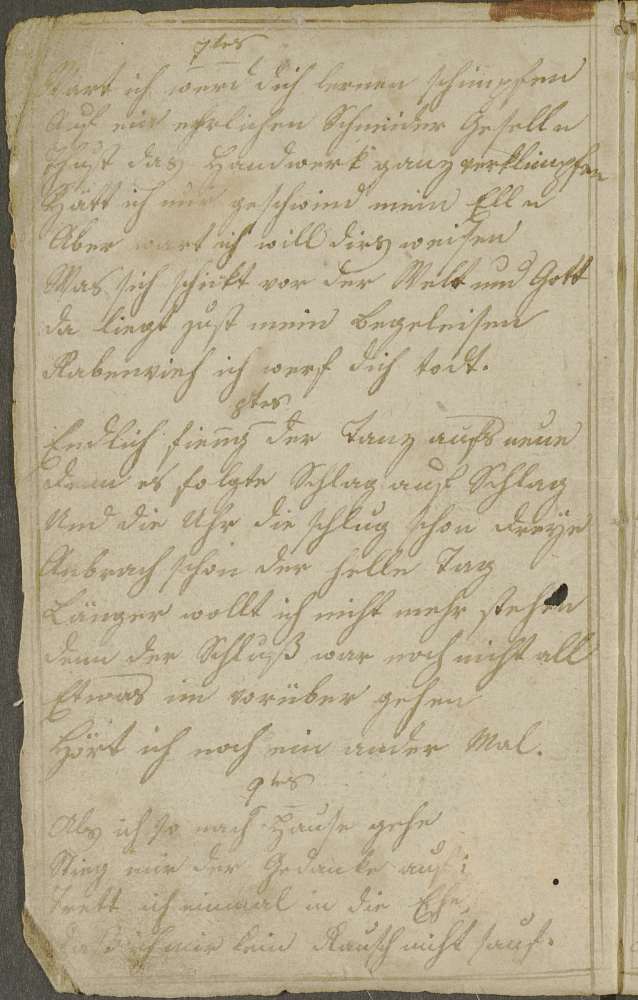 7tes
Wart ich werd dich lernen schimpfen
Auf ein ehrlichen Schneider Geselln
Thust das Handwerk ganz verklimpfen
Hätt ich nur geschwind mein Elln
Aber wart ich will dirs weisen
Was sich schickt vor der Welt und Gott
da liegt just mein begeleisen
Rabenvieh ich werf dich todt.
8tes
Endlich fieng der Tanz aufs neue
denn es folgte Schlag auf Schlag
Und die Uhr die schlug schon dreye
Anbrach schon der helle Tag
Länger wollt ich nicht mehr stehen
denn der Schluß war noch nicht all
Etwas im vorüber gehen
Hört ich noch ein ander Mal.
9tes
Als ich so nach Hause gehe
Stieg mir der Gedanke auf:
Trett ich einmal in die Ehe,
daß ich mir kein Rausch nicht sauf.